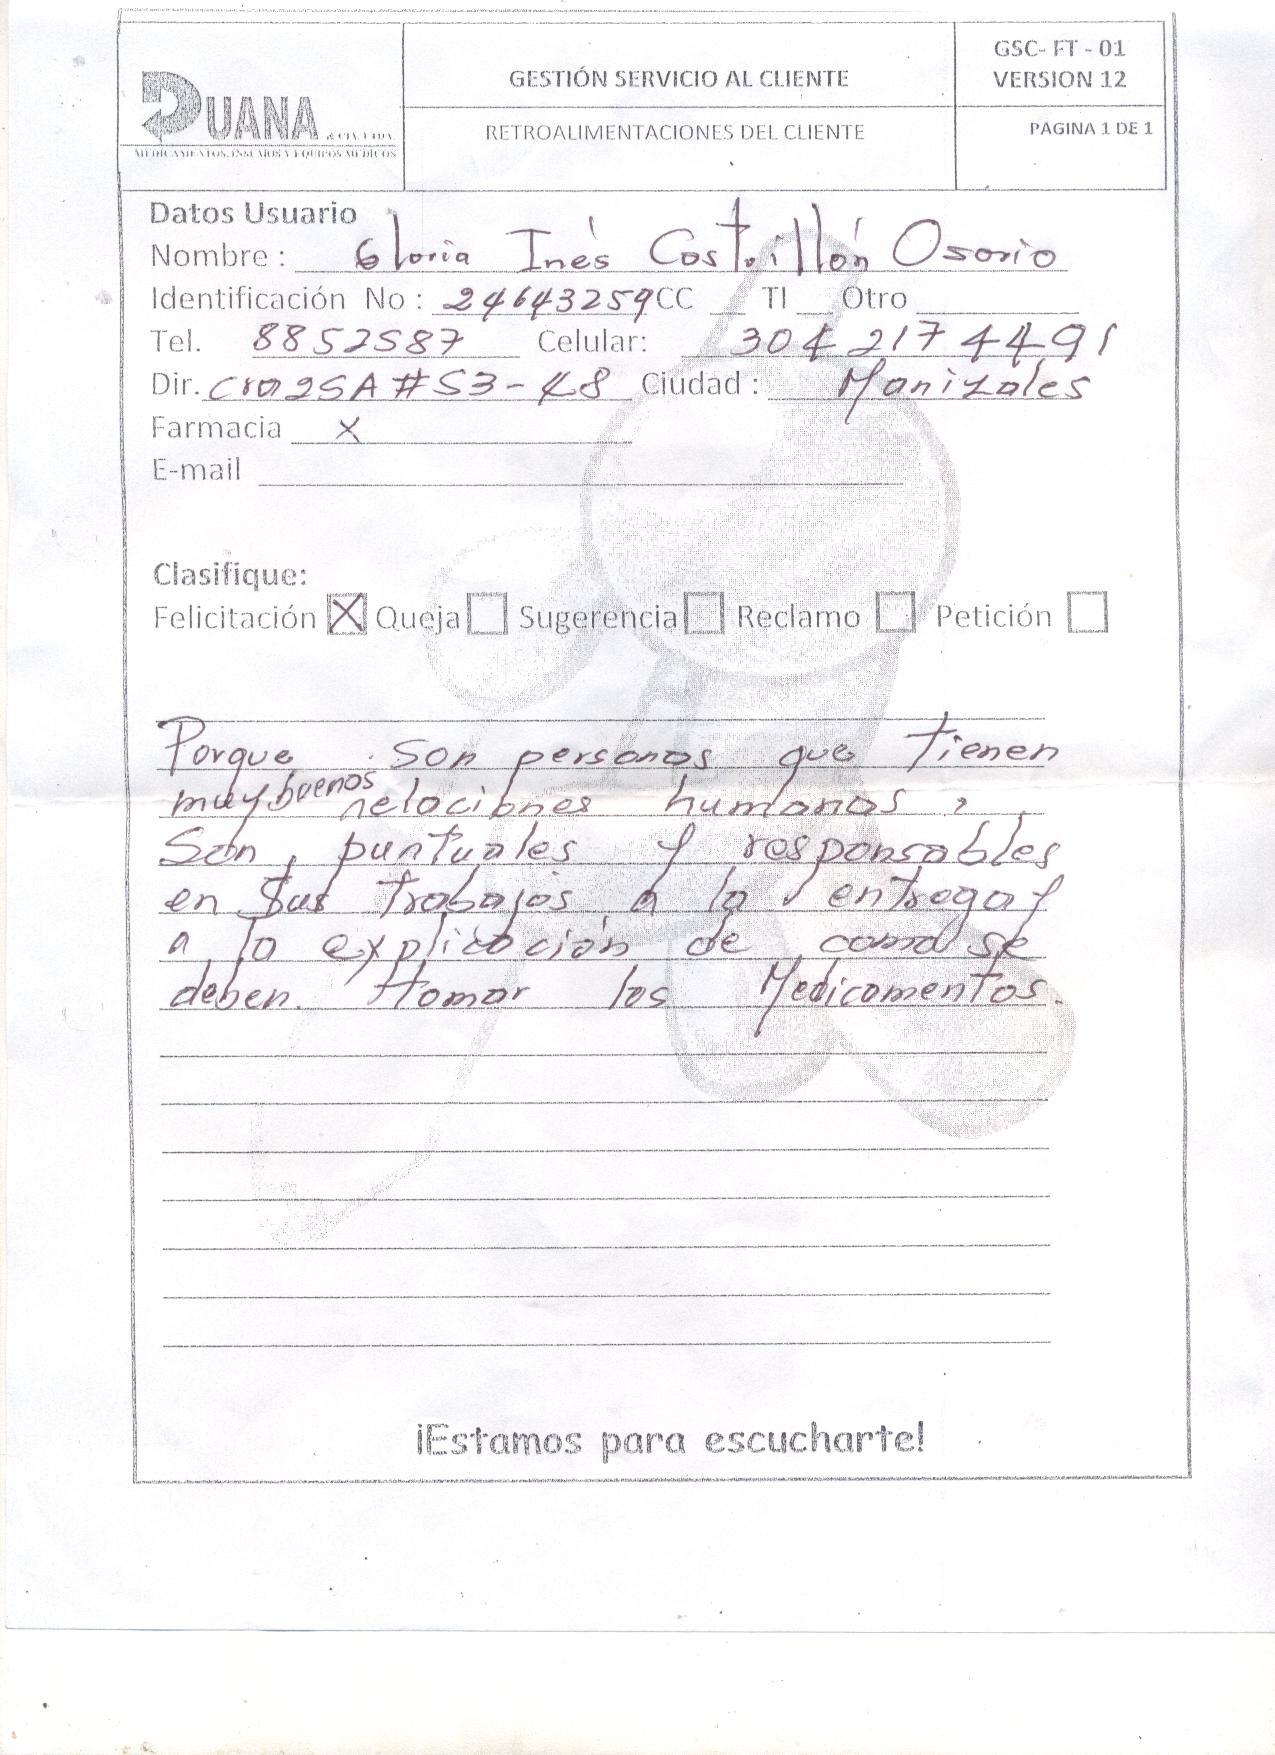 DUANA & CIA. LTDA.
MEDICAMENTOS, INSUMOS Y EQUIPOS MEDICOS
GESTIÓN SERVICIO AL CLIENTE
RETROALIMENTACIONES DEL CLIENTE
GSC- FT - 01
VERSION 12
PAGINA 1 DE 1
Datos Usuario
Nombre : Gloria Inés Castrillón Osorio
Identificación No : 24643259 CC __ TI __ Otro
Tel. 8852587 Celular: 304 217 4491
Dir. cra25A #53-48 Ciudad : Manizales
Farmacia X
E-mail
Clasifique:
Felicitación X Queja Sugerencia Reclamo Petición
Porque son personas que tienen
muy buenas relaciones humanas,
Son, puntuales y responsables
en sus trabajos a la entrega y
a la explicación de como se
deben tomar los Medicamentos.
¡Estamos para escucharte!